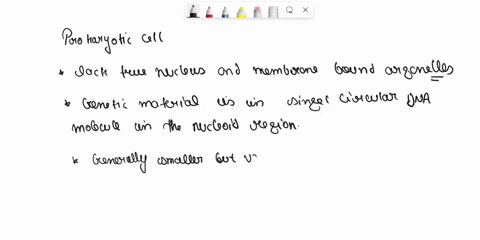 Prokaryotic cell
* lack true nucleus and membrane bound organelles
* Genetic material is in singel circular DNA
molecule in the nucleoid region.
* Generally smaller but